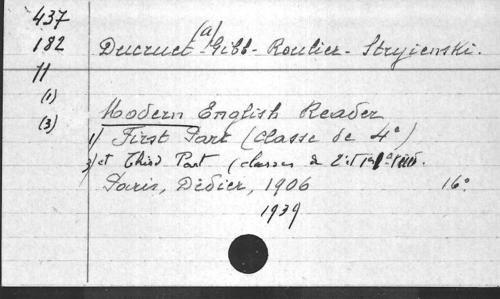 437
182 Ducruet (a) Gibb - Roulier - Stryienski.
11
(1)
Modern English Reader
(3)
1) First Part (Classe de 4e)
3) et Third Part (classes de 2e et 1e
Paris, Didier, 1906 16°
1939